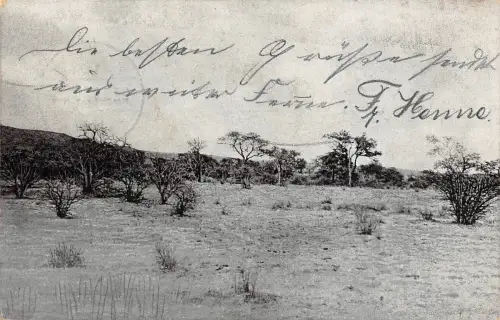 Die besten Grüße sendet
aus weiter Ferne. Fr. Henne.